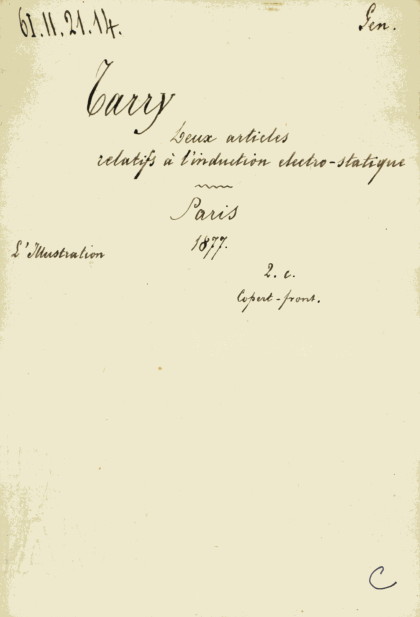 61.11.21.14.
Gen.
Tarry
Deux articles
relatifs à l'induction electro-statique
Paris
1877.
L'Illustration
2. c.
Copert-front.
C